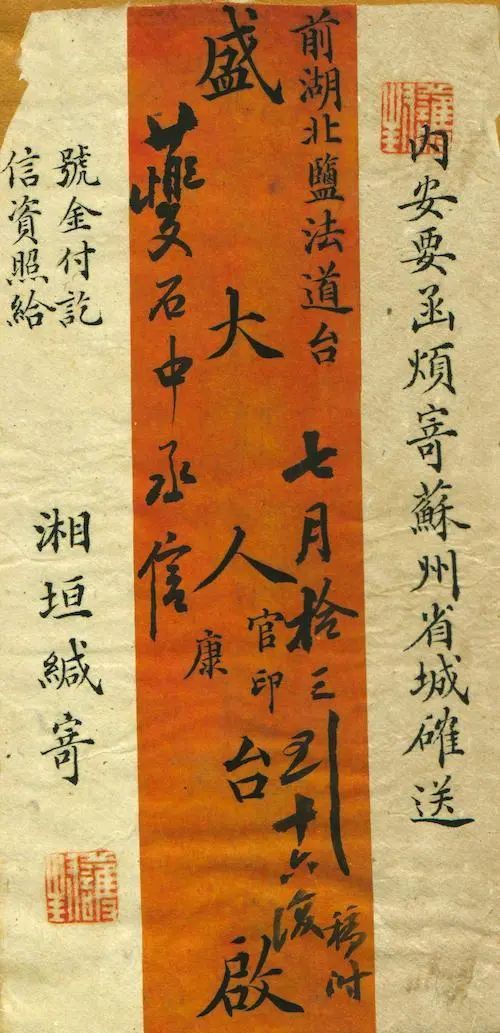 護封
内安要函煩寄蘇州省城確送
前湖北鹽法道台
七月拾三到十六復
稿附
盛大人台啟
官印
康
夔石中丞信
號金付訖
信資照給
湘垣緘寄
護封